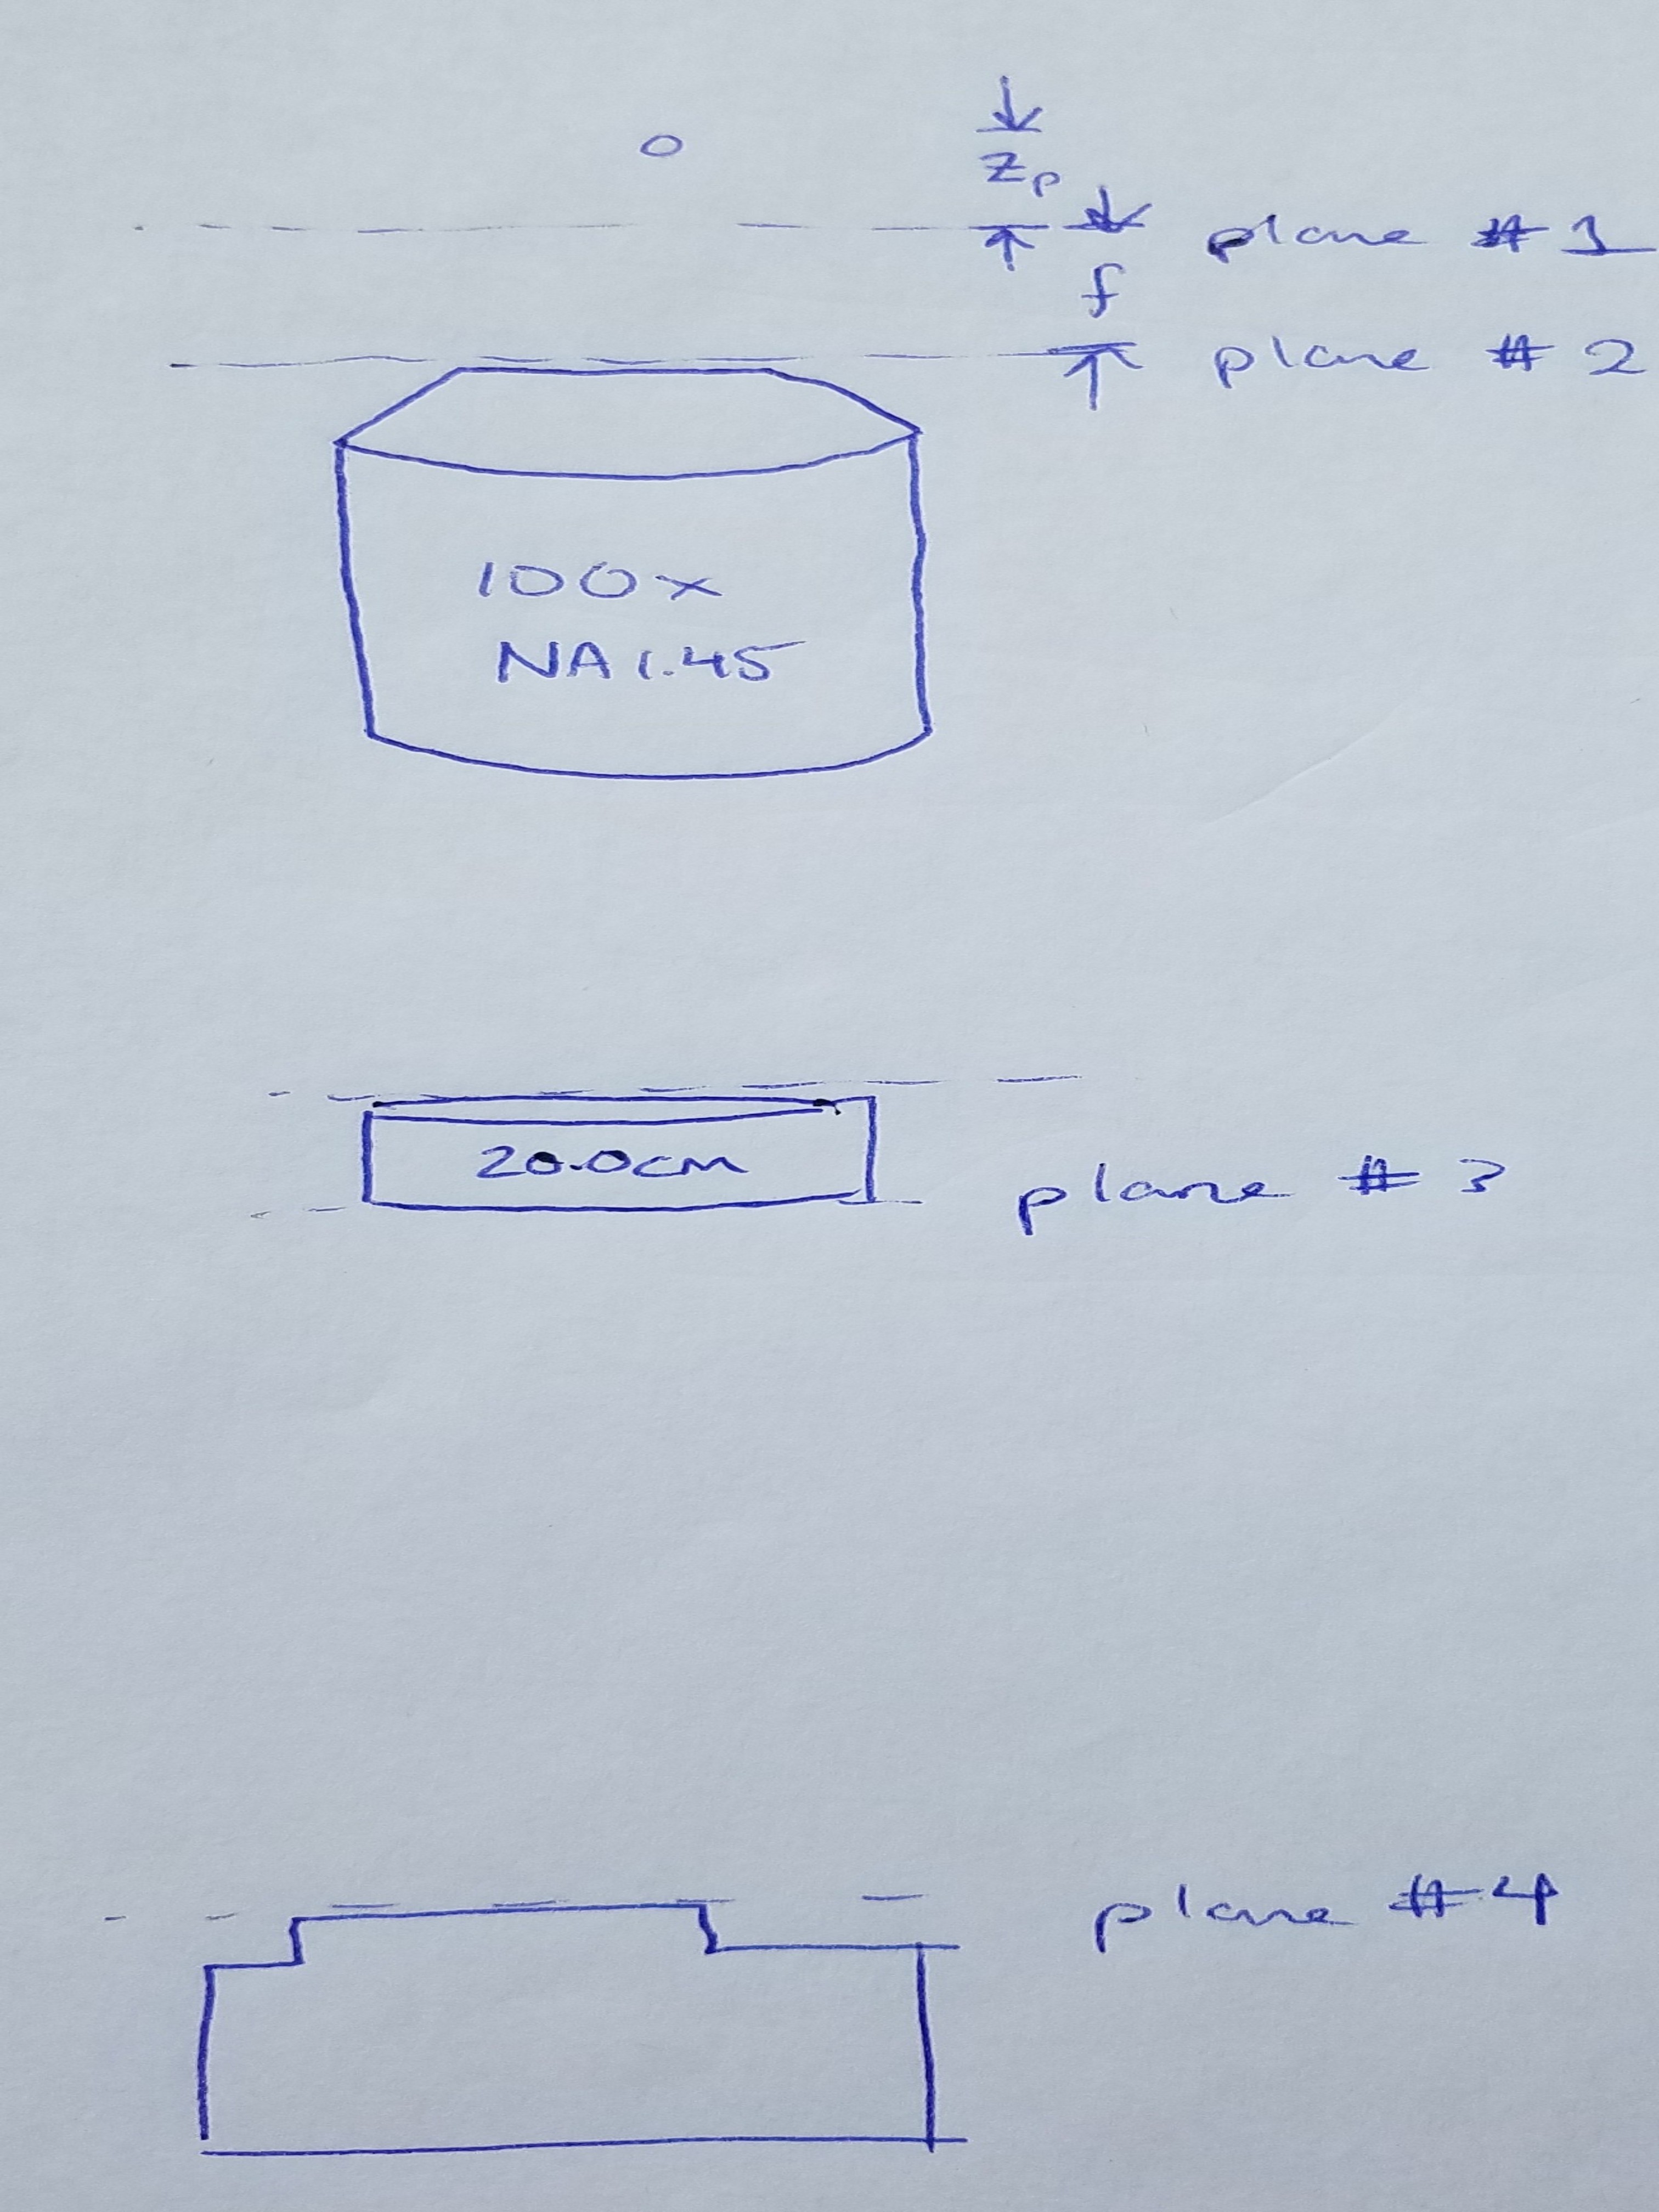 z_p
plane # 1
f
plane # 2
100x
NA 1.45
20.0cm
plane # 3
plane # 4